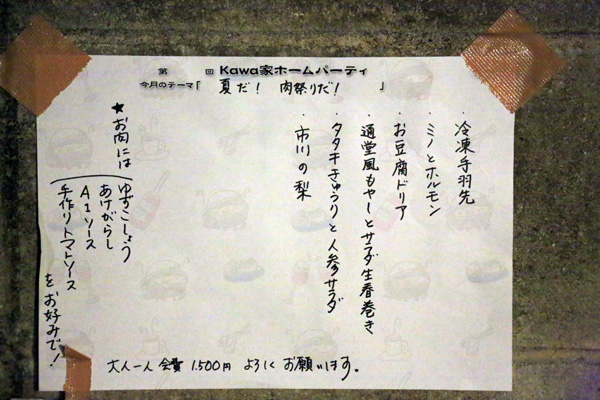 第　　回 Kawa家ホームパーティ
今月のテーマ「 夏だ！ 肉祭りだ！ 」
・冷凍手羽先
・ミノとホルモン
・お豆腐ドリア
・通堂風もやしとサラダ生春巻き
・タタキきゅうりと人参サラダ
・市川の梨
★お肉には
ゆずこしょう
あげがらし
A1ソース
手作りトマトソース
をお好みで！
大人一人 会費 1,500円 よろしくお願いします。